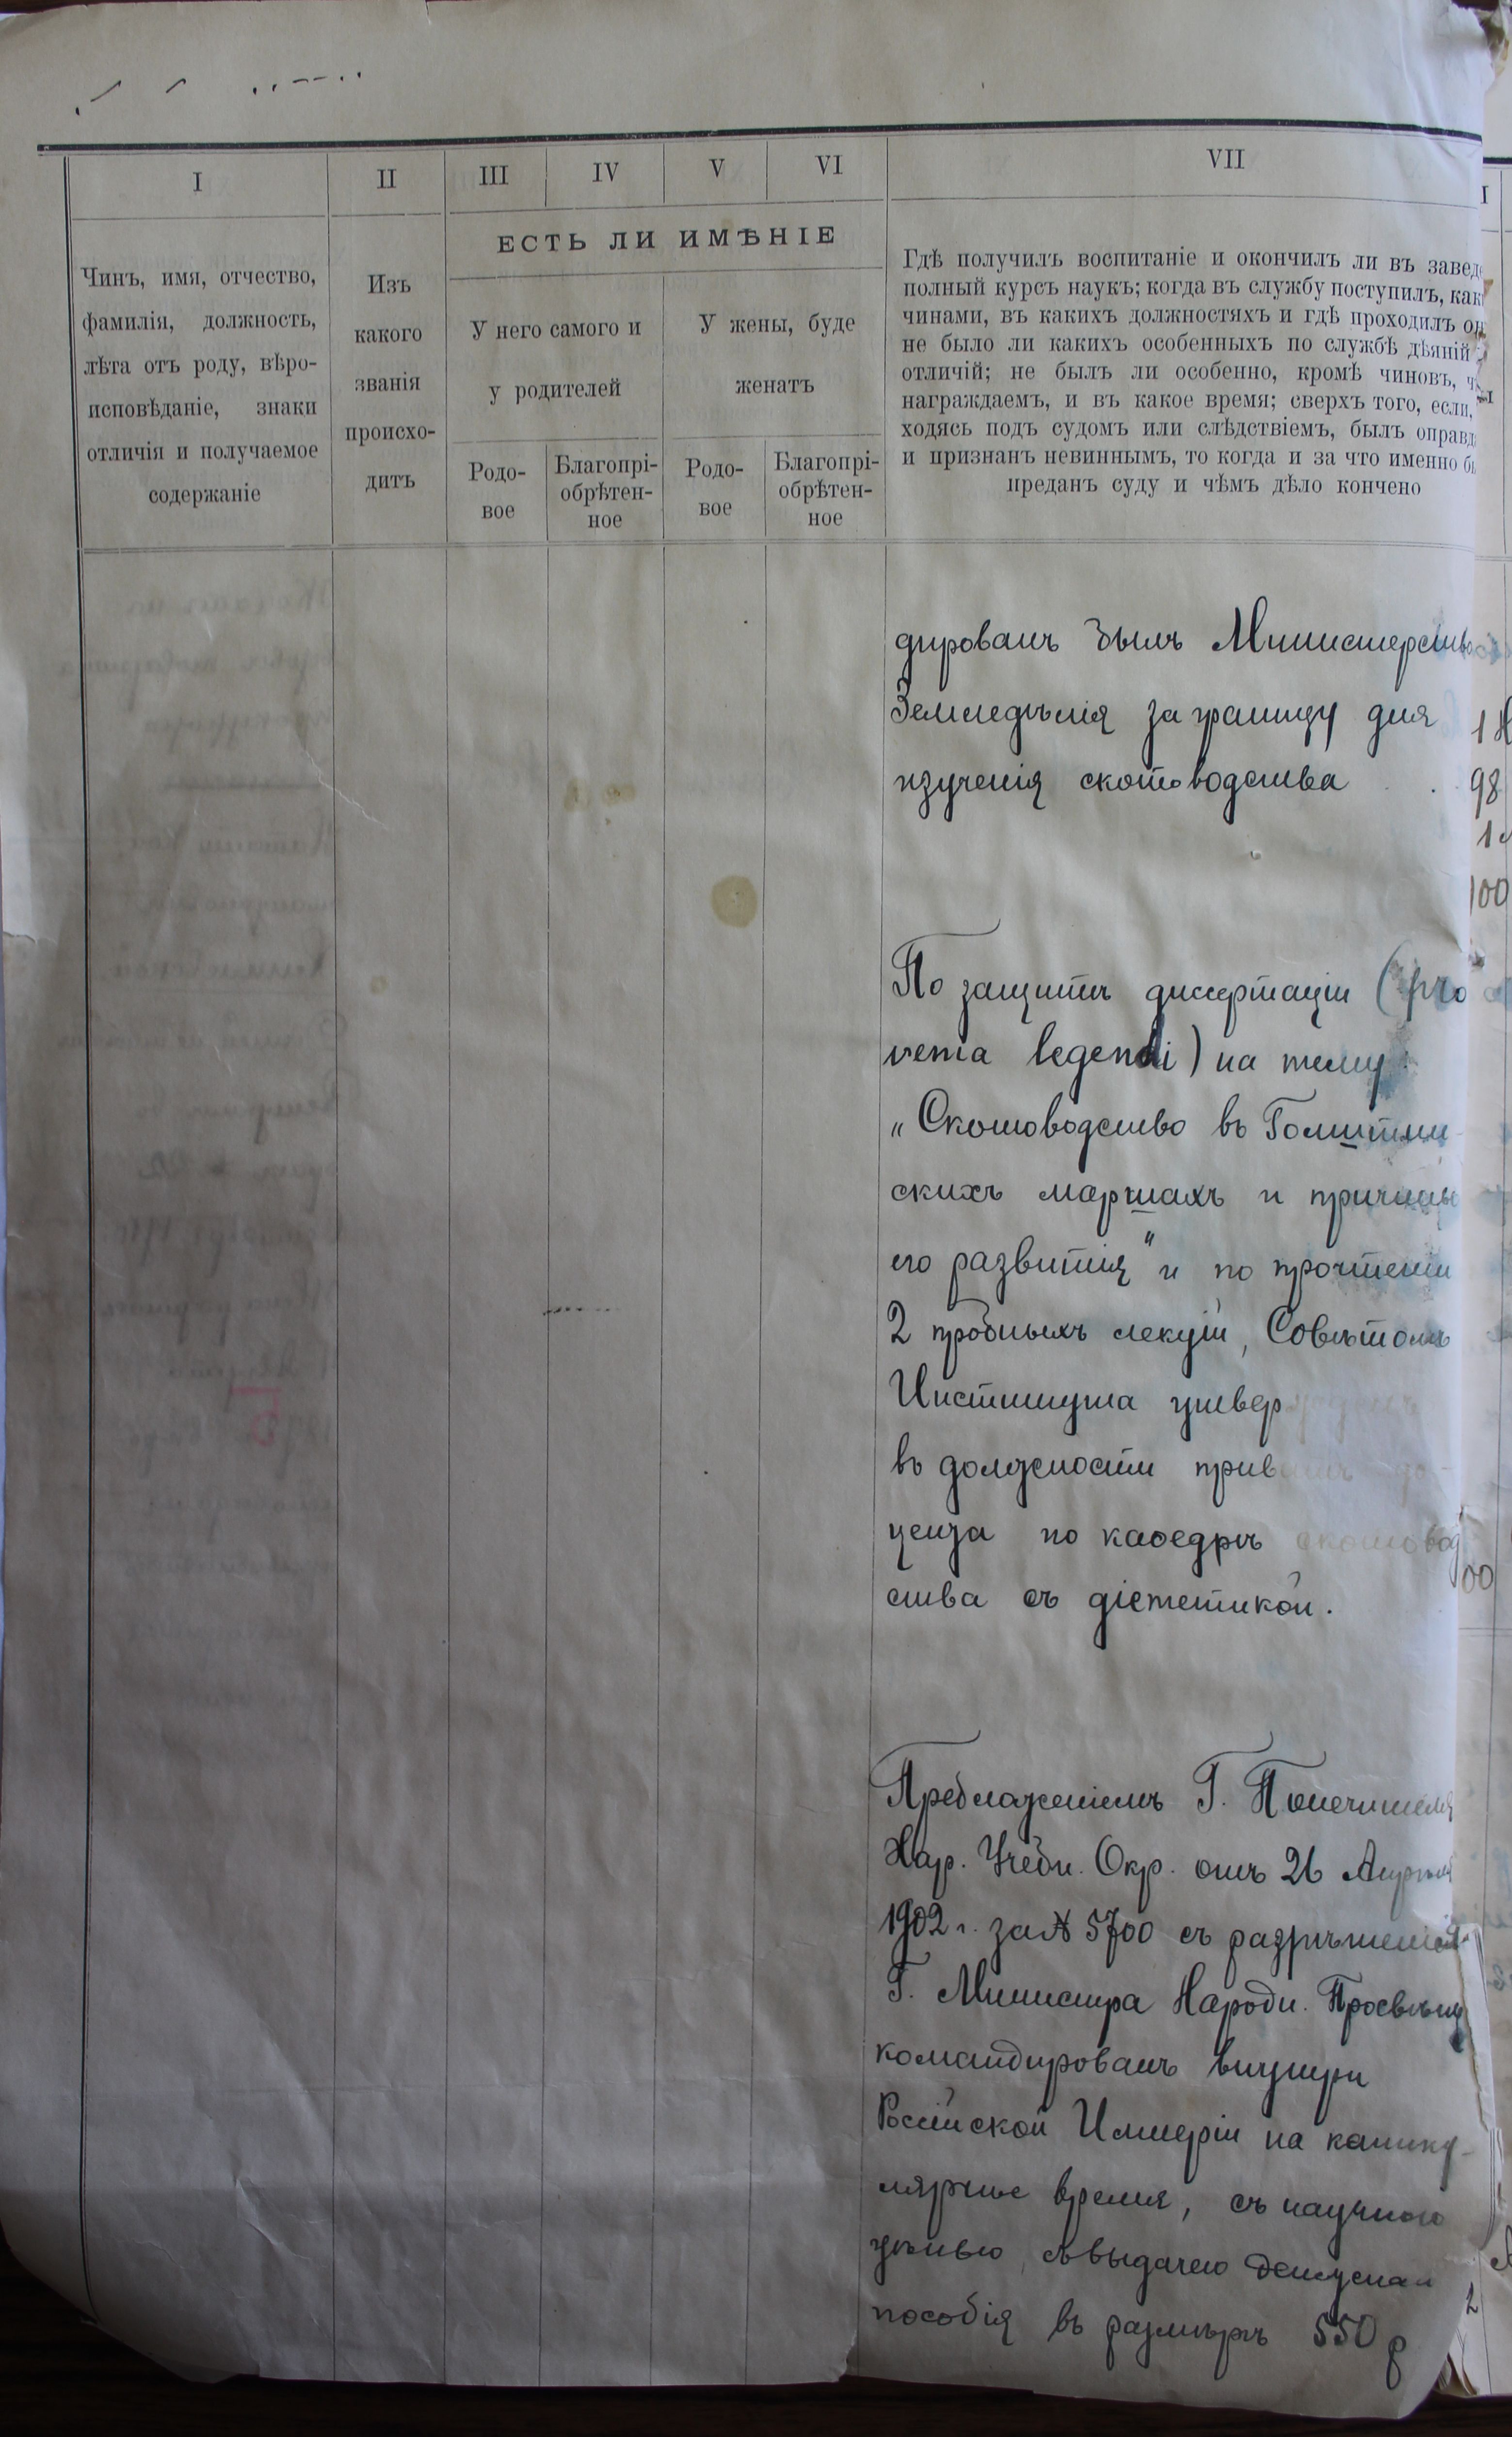 I II III IV V VI VII
ЕСТЬ ЛИ ИМѢНІЕ
Чинъ, имя, отчество,
фамилія, должность,
лѣта отъ роду, вѣро-
исповѣданіе, знаки
отличія и получаемое
содержаніе
Изъ
какого
званія
происхо-
дитъ
У него самого и
у родителей
У жены, буде
женатъ
Родо-
вое
Благопрі-
обрѣтен-
ное
Родо-
вое
Благопрі-
обрѣтен-
ное
Гдѣ получилъ воспитаніе и окончилъ ли въ завед
полный курсъ наукъ; когда въ службу поступилъ, как
чинами, въ какихъ должностяхъ и гдѣ проходилъ он
не было ли какихъ особенныхъ по службѣ дѣяній
отличій; не былъ ли особенно, кромѣ чиновъ, ч
награждаемъ, и въ какое время; сверхъ того, если,
ходясь подъ судомъ или слѣдствіемъ, былъ оправд
и признанъ невиннымъ, то когда и за что именно б
преданъ суду и чѣмъ дѣло кончено
дированъ былъ Министерство
Земледѣлія за границу для
изученія скотоводства
По защитѣ диссертаціи (pro
venia legendi) на тему:
„Скотоводство въ Голштин
скихъ маршахъ и причины
его развитія" и по прочтеніи
2 пробныхъ лекцій, Совѣтомъ
Института утвержденъ
въ должности приватъ-до-
цента по каѳедрѣ скотовод
ства съ діэтетикой.
Предложеніемъ Г. Попечителя
Хар. Учебн. Окр. отъ 26 Апрѣля
1902 г. за № 5700 съ разрѣшенія
Г. Министра Народн. Просвѣщ
командированъ внутри
Россійской Имперіи на канику-
лярное время, съ научною
цѣлью, съ выдачею
пособія въ размѣрѣ 550 р
98
100
00
2